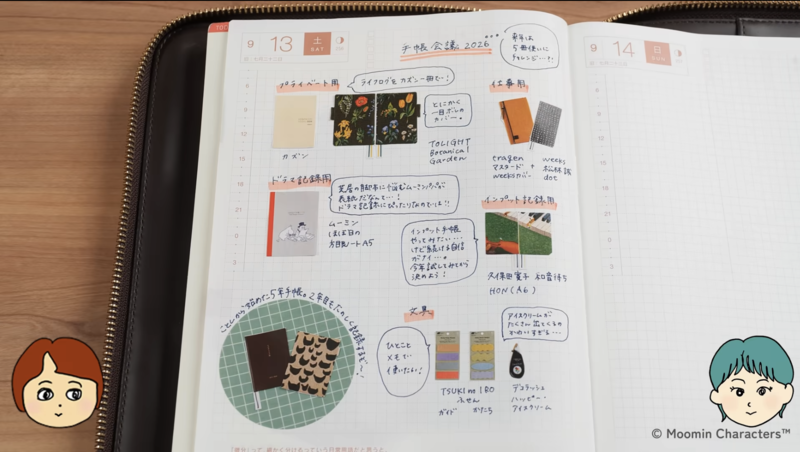 9 13 土 SAT
手帳会議 2026
来年は
5冊使いに
チャレンジ…!
9 14 日
プライベート用
ライフログを カズン一冊で…!
仕事用
とにかく
一目ぼれの
カバー。
カズン
TOLIGHT
Botanical
Garden
tragen
マスタード
weeksカバー
+
weeks
松林 誠
dot
ドラマ記録用
芝居の脚本に悩むムーミンパパが
表紙だなんて…!
ドラマ記録にぴったりなのでは!?
ムーミン
ほぼ日の
方眼ノートA5
インプット記録用
インプット手帳
やってみたい…
けど続ける自信
がナイ…。
今年試してみてから
決めよう!
久保田寛子 和音待ち
HON(A6)
ことしから始めた5年手帳。2年目もたのしく記録するぞ〜!
文具
ひとこと
メモで
使いたい!
アイスクリームが
たくさん出てくるの
かわいすぎる…
TSUKI no IRO
ふせん
ガイド かたち
デコラッシュ
ハッピー・
アイスクリーム
© Moomin Characters™